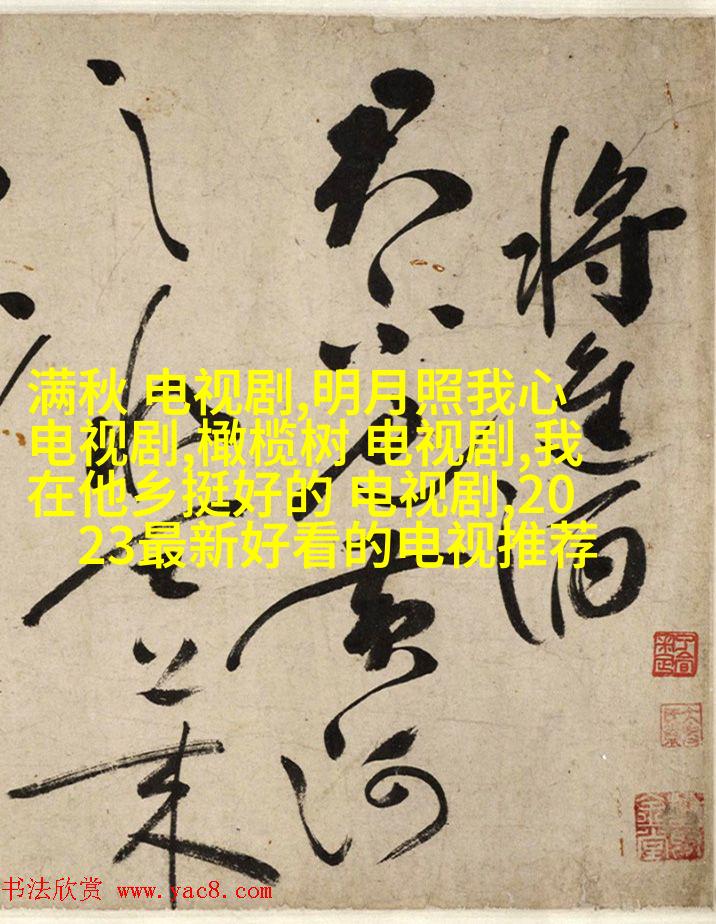 將進酒
君不見黃河
之水天上来
满秋 电视剧,明月照我心
电视剧,橄榄树 电视剧,我
在他乡挺好的 电视剧,20
23最新好看的电视推荐
书法欣赏 www.yac8.com